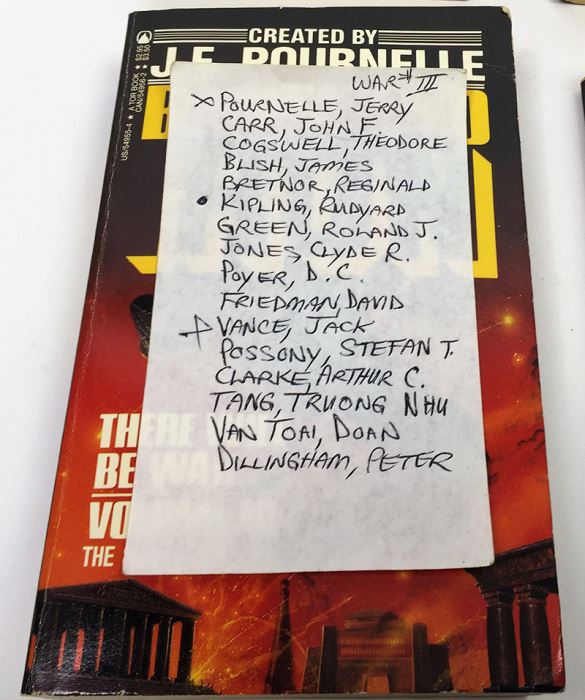 CREATED BY
J.E. POURNELLE
A TOR BOOK ★ $2.95
US/54955-4 ★ CAN/54956-2 ★ $3.50
WAR # III
X POURNELLE, JERRY
CARR, JOHN F
COGSWELL, THEODORE
BLISH, JAMES
BRETNOR, REGINALD
• KIPLING, RUDYARD
GREEN, ROLAND J.
JONES, CLYDE R.
POYER, D.C.
FRIEDMAN, DAVID
+ VANCE, JACK
POSSONY, STEFAN T.
CLARKE, ARTHUR C.
TANG, TRUONG NHU
VAN TOAI, DOAN
DILLINGHAM, PETER
THERE
BE WAR
VO
THE